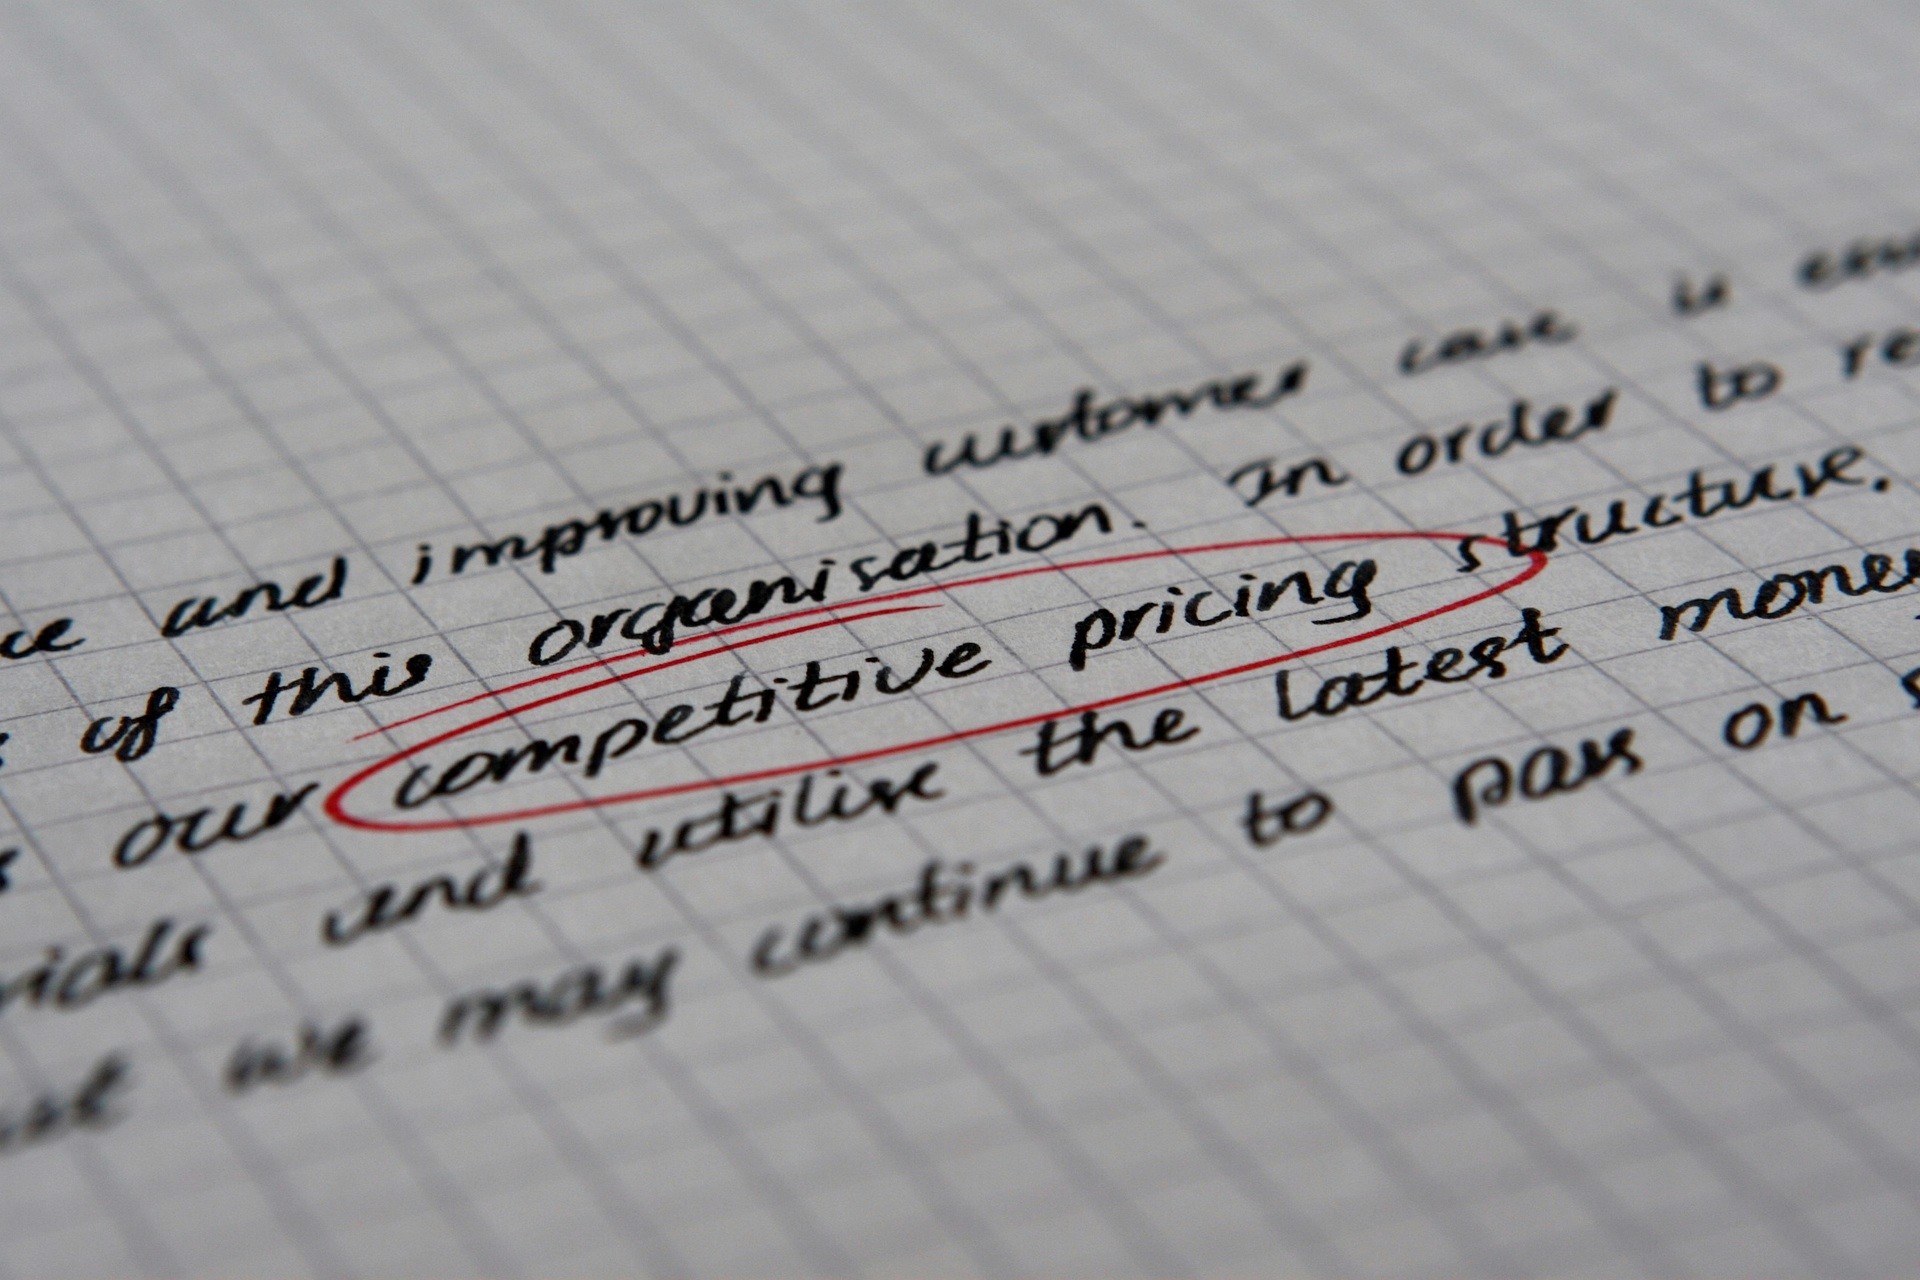 and improving customer care is
of this organisation. In order to re
our competitive pricing structure.
rials and utilise the latest mone
we may continue to pass on s